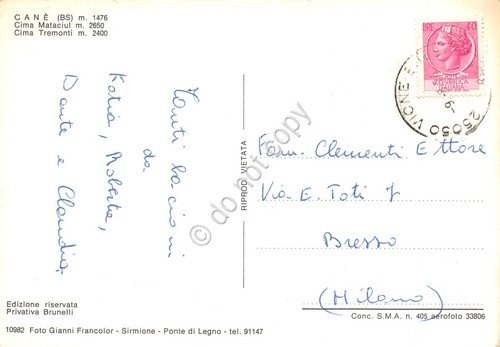 CANÈ (BS) m. 1476
Cima Mataciul m. 2650
Cima Tremonti m. 2400
Tanti bacioni
da
Katia, Roberta,
Dante e Claudia.
Edizione riservata
Privativa Brunelli
10982 Foto Gianni Francolor - Sirmione - Ponte di Legno - tel. 91147
RIPROD VIETATA
LIRE 40
REPUBBLICA
ITALIANA
25050 VIONE
Fam. Clementi Ettore
Via E. Toti
Bresso
(Milano)
Conc. S.M.A. n. 405 aerofoto 33806
© do not copy